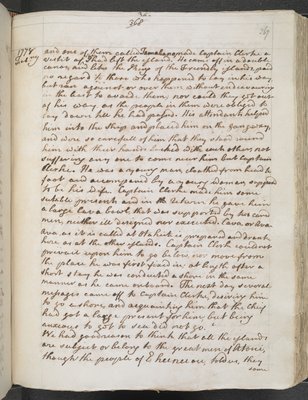 368
1778
and one of them called Tamahano made Captain Clerke a
visit after I had left the island. He came off in a double
canoe, and like the King of the Friendly Islands, paid
no regard to those who happened to lay in his way
but ran against or over them without endeavouring
in the least to avoid them. nor could they get out
of his way as the people in them were obliged to
lay down till he had passed. His attendants helped
him into the Ship and placed him on the gangway,
and were so carefull of him that they stood round
him with their hands locked with each other, not
suffering any one to come near him but Captain
Clerke. He was a young man, cloathed from head to
foot and accompaned by a young woman, supposed
to be his Wife. Captain Clerke made him some
sutable present and in the return he gave him
a large Cava bowl, that was supported by two card
men, neither ill designed nor executed. Cava, or Ava
Ava as it is called at Otaheite is prepared and drank
here as at the other islands. Captain Clerke could not
prevail upon him to go below nor move from
the place he was first fixed in, at length after a
short stay he was conducted a shore in the same
manner as he came onboard. The next day several
messages came off to Captain Clerke, desiring him
to go a shore, and acquainting him that the chief
had got a large present for him, but being
anxious to get to sea did not go.
We had good reason to think that all the islands
are subject or belong to the great men of Atooi,
though the people of Eneeheeou told us, they
some